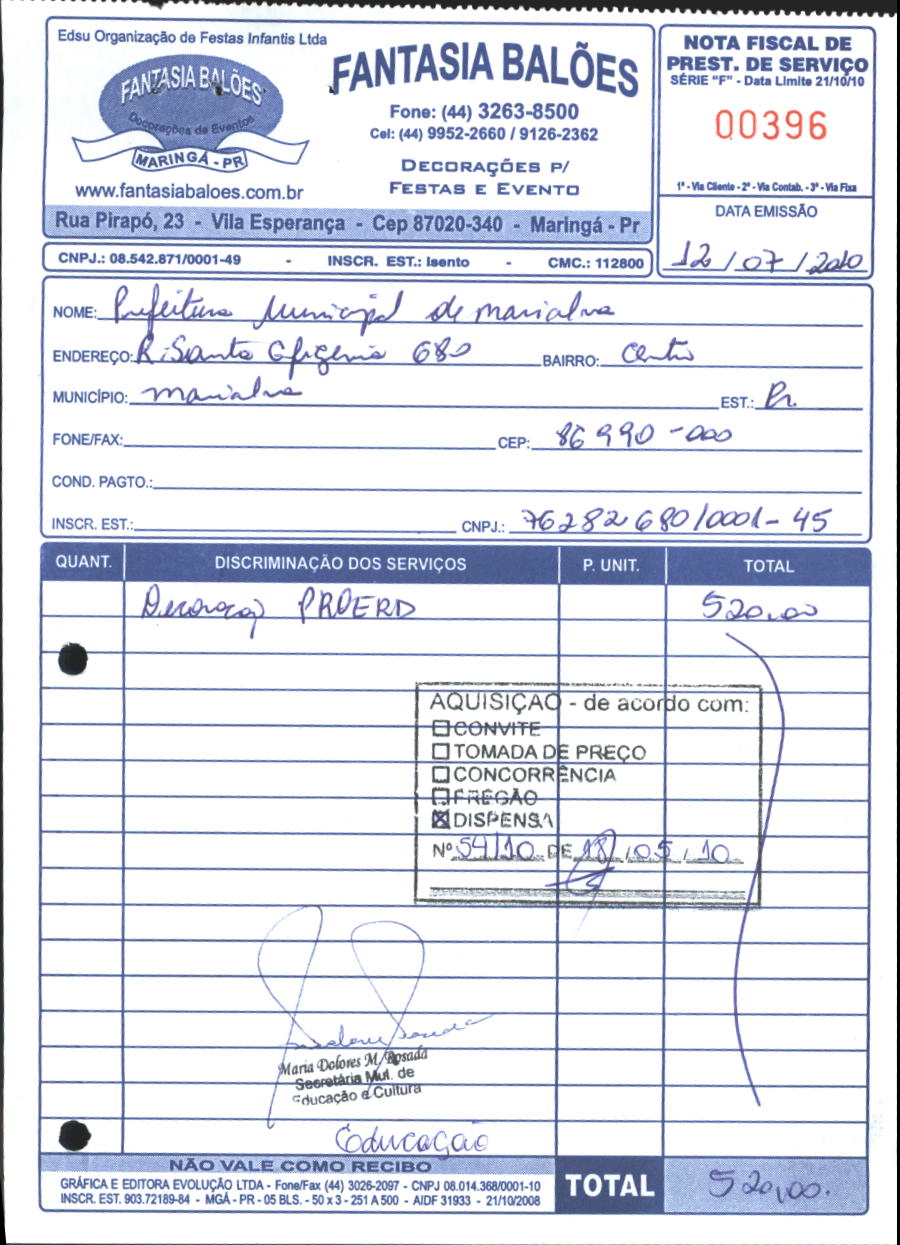 Edsu Organização de Festas Infantis Ltda
FANTASIA BALÕES
Decorações de Eventos
MARINGÁ - PR
www.fantasiabaloes.com.br
FANTASIA BALÕES
Fone: (44) 3263-8500
Cel: (44) 9952-2660 / 9126-2362
DECORAÇÕES P/
FESTAS E EVENTO
Rua Pirapó, 23 - Vila Esperança - Cep 87020-340 - Maringá - Pr
NOTA FISCAL DE
PREST. DE SERVIÇO
SÉRIE "F" - Data Limite 21/10/10
00396
1ª - Via Cliente - 2ª - Via Contab. - 3ª - Via Fixa
DATA EMISSÃO
12 / 07 / 2010
CNPJ.: 08.542.871/0001-49 - INSCR. EST.: Isento - CMC.: 112800
NOME: Prefeitura Municipal de marialva
ENDEREÇO: R. Santa Efigenia 680 BAIRRO: Centro
MUNICÍPIO: marialva EST.: Pr
FONE/FAX: CEP: 86990-000
COND. PAGTO.:
INSCR. EST.: CNPJ.: 76282680/0001-45
QUANT. DISCRIMINAÇÃO DOS SERVIÇOS P. UNIT. TOTAL
Decoração PROERD 520,00
AQUISIÇAO - de acordo com:
CONVITE
TOMADA DE PREÇO
CONCORRÊNCIA
PREGÃO
DISPENSA
Nº 54/10 DE 18 / 05 / 10
Maria Dolores M. Rosada
Secretária Mul. de
Educação e Cultura
Educação
NÃO VALE COMO RECIBO
GRÁFICA E EDITORA EVOLUÇÃO LTDA - Fone/Fax (44) 3026-2097 - CNPJ 08.014.368/0001-10
INSCR. EST. 903.72189-84 - MGÁ - PR - 05 BLS. - 50 x 3 - 251 A 500 - AIDF 31933 - 21/10/2008
TOTAL 520,00.